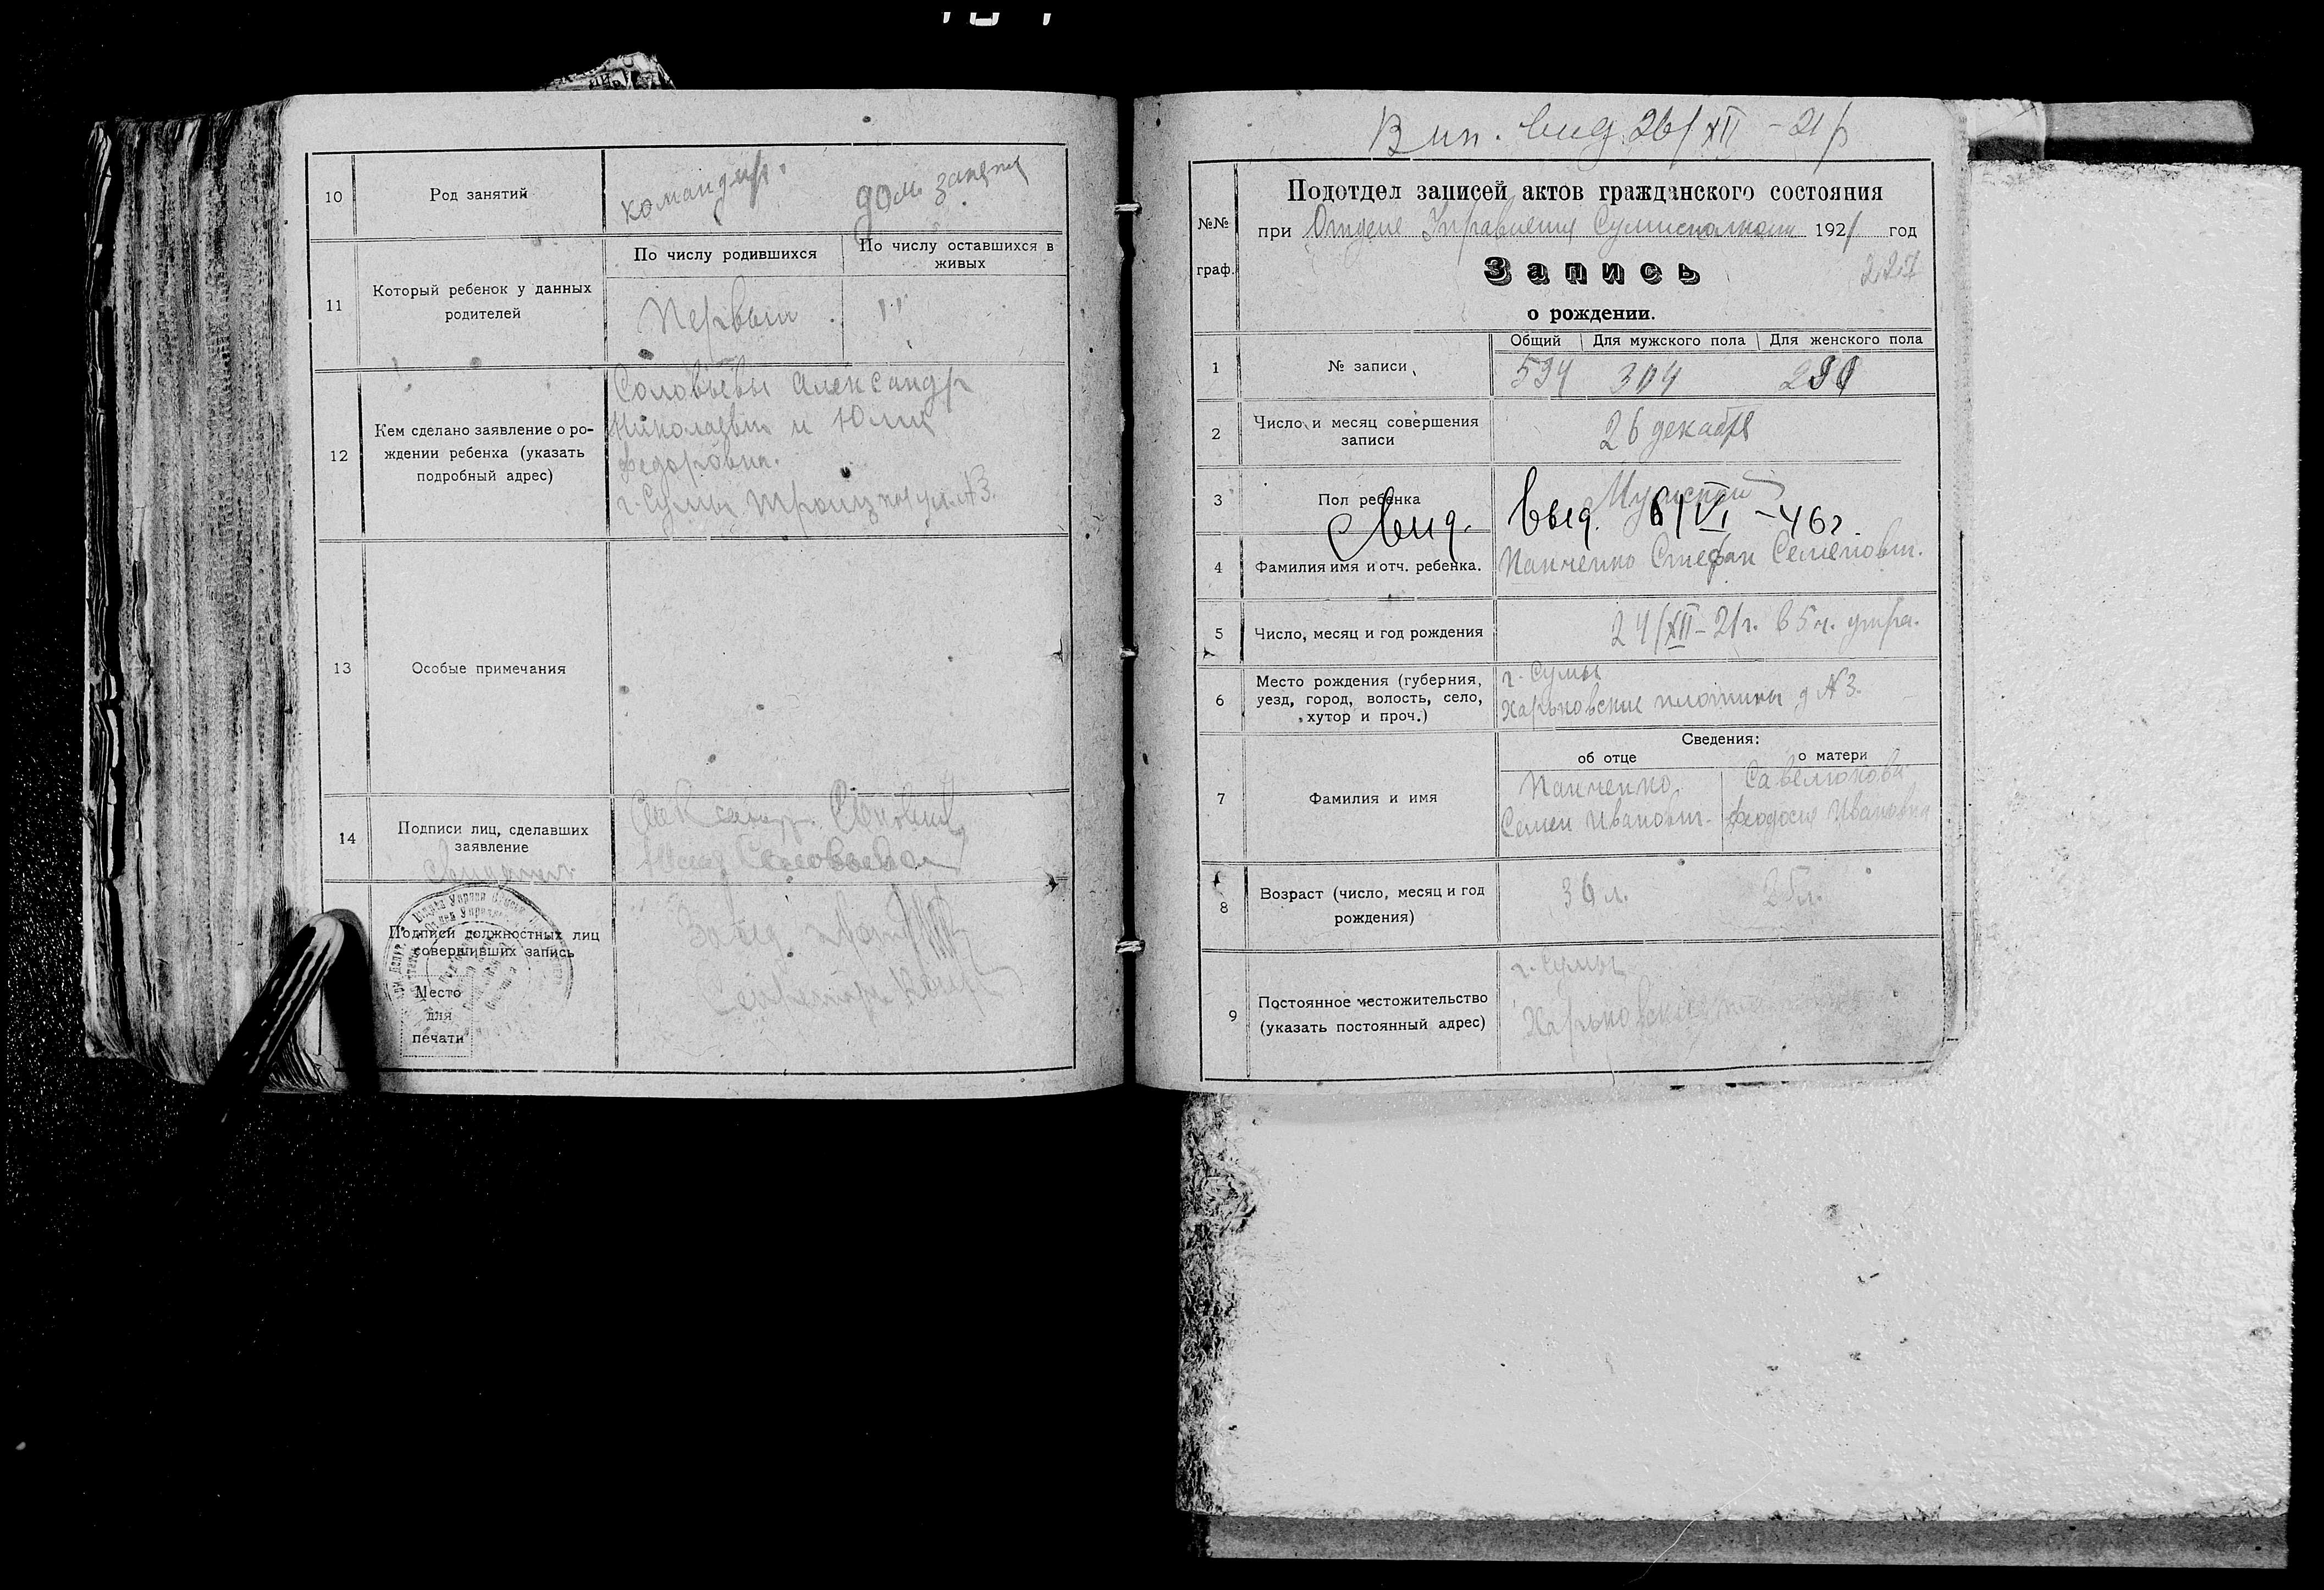 10
Род занятий
командир.
дом. занятия
11
Который ребенок у данных
родителей
По числу родившихся
По числу оставшихся в
живых
Первый
"
12
Кем сделано заявление о ро-
ждении ребенка (указать
подробный адрес)
Соловьевы Александр
Николаевич и Юлия
Федоровна.
г. Сумы Троицкая ул. №3.
13
Особые примечания
14
Подписи лиц, сделавших
заявление
Соловьева
Подписи должностных лиц
совершивших запись
Завед.
Секретарь
Место
для
печати
Вип. вид. 26/XII - 21 р
№№
граф.
Подотдел записей актов гражданского состояния
при Отделе Управления 1921 год
Запись
о рождении.
227
1
№ записи
Общий
Для мужского пола
Для женского пола
594
304
290
2
Число и месяц совершения
записи
26 декабря
3
Пол ребенка
Мужской
Свид. выд. 6/VI - 46 г
4
Фамилия имя и отч. ребенка.
Панченко Стефан Семенович.
5
Число, месяц и год рождения
24/XII - 21 г. в 5 ч. утра.
6
Место рождения (губерния,
уезд, город, волость, село,
хутор и проч.)
г. Сумы
Харьковские д №3.
7
Фамилия и имя
Сведения:
об отце
о матери
Панченко
Семен Иванович.
Савелюкова
Феодосия Ивановна
8
Возраст (число, месяц и год
рождения)
36 л.
25 л.
9
Постоянное местожительство
(указать постоянный адрес)
г. Сумы
Харьковские